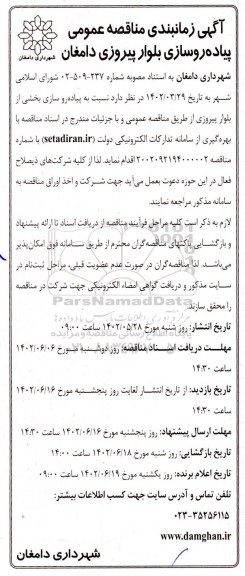 آگهی زمانبندی مناقصه عمومی
پیاده‌روسازی بلوار پیروزی دامغان
شهرداری دامغان
شهرداری دامغان به استناد مصوبه شماره ۲۳۷-۵۰۹-۰۲ شورای اسلامی
شهر به تاریخ ۱۴۰۲/۰۳/۲۹ در نظر دارد نسبت به پیاده‌رو سازی بخشی از
بلوار پیروزی از طریق مناقصه عمومی و با جزئیات مندرج در اسناد مناقصه با
بهره‌گیری از سامانه تدارکات الکترونیکی دولت (setadiran.ir) با شماره
مناقصه ۲۰۰۲۰۹۲۱۹۴۰۰۰۰۰۲ اقدام نماید. لذا از کلیه شرکت‌های ذیصلاح
فعال در این حوزه دعوت بعمل می‌آید جهت شرکت و اخذ اوراق مناقصه به
سامانه مذکور مراجعه نمایند.
لازم به ذکر است کلیه مراحل فرآیند مناقصه از دریافت اسناد تا ارائه پیشنهاد
و بازگشایی پاکتهای مناقصه‌گران محترم از طریق سامانه فوق امکان پذیر
می‌باشد. لذا مناقصه‌گران در صورت عدم عضویت قبلی، مراحل ثبت‌نام در
سایت مذکور و دریافت گواهی امضاء الکترونیکی جهت شرکت در مناقصه
را محقق سازند.
ParsNamadData
تاریخ انتشار: روز شنبه مورخ ۱۴۰۲/۰۵/۲۸ ساعت ۰۹:۰۰
مهلت دریافت اسناد مناقصه: روز دوشنبه مورخ ۱۴۰۲/۰۶/۰۶
ساعت ۱۴:۳۰
تاریخ بازدید: از تاریخ انتشار لغایت روز پنجشنبه مورخ ۱۴۰۲/۰۶/۱۶
ساعت ۱۴:۳۰
مهلت ارسال پیشنهاد: روز پنجشنبه مورخ ۱۴۰۲/۰۶/۱۶ ساعت ۱۴:۳۰
تاریخ بازگشایی: روز شنبه مورخ ۱۴۰۲/۰۶/۱۸ ساعت ۱۴:۰۰
تاریخ اعلام برنده: روز یکشنبه مورخ ۱۴۰۲/۰۶/۱۹ ساعت ۰۹:۰۰
تلفن تماس و آدرس سایت جهت کسب اطلاعات بیشتر:
۰۲۳-۳۵۲۵۶۱۱۵
www.damghan.ir
شهرداری دامغان